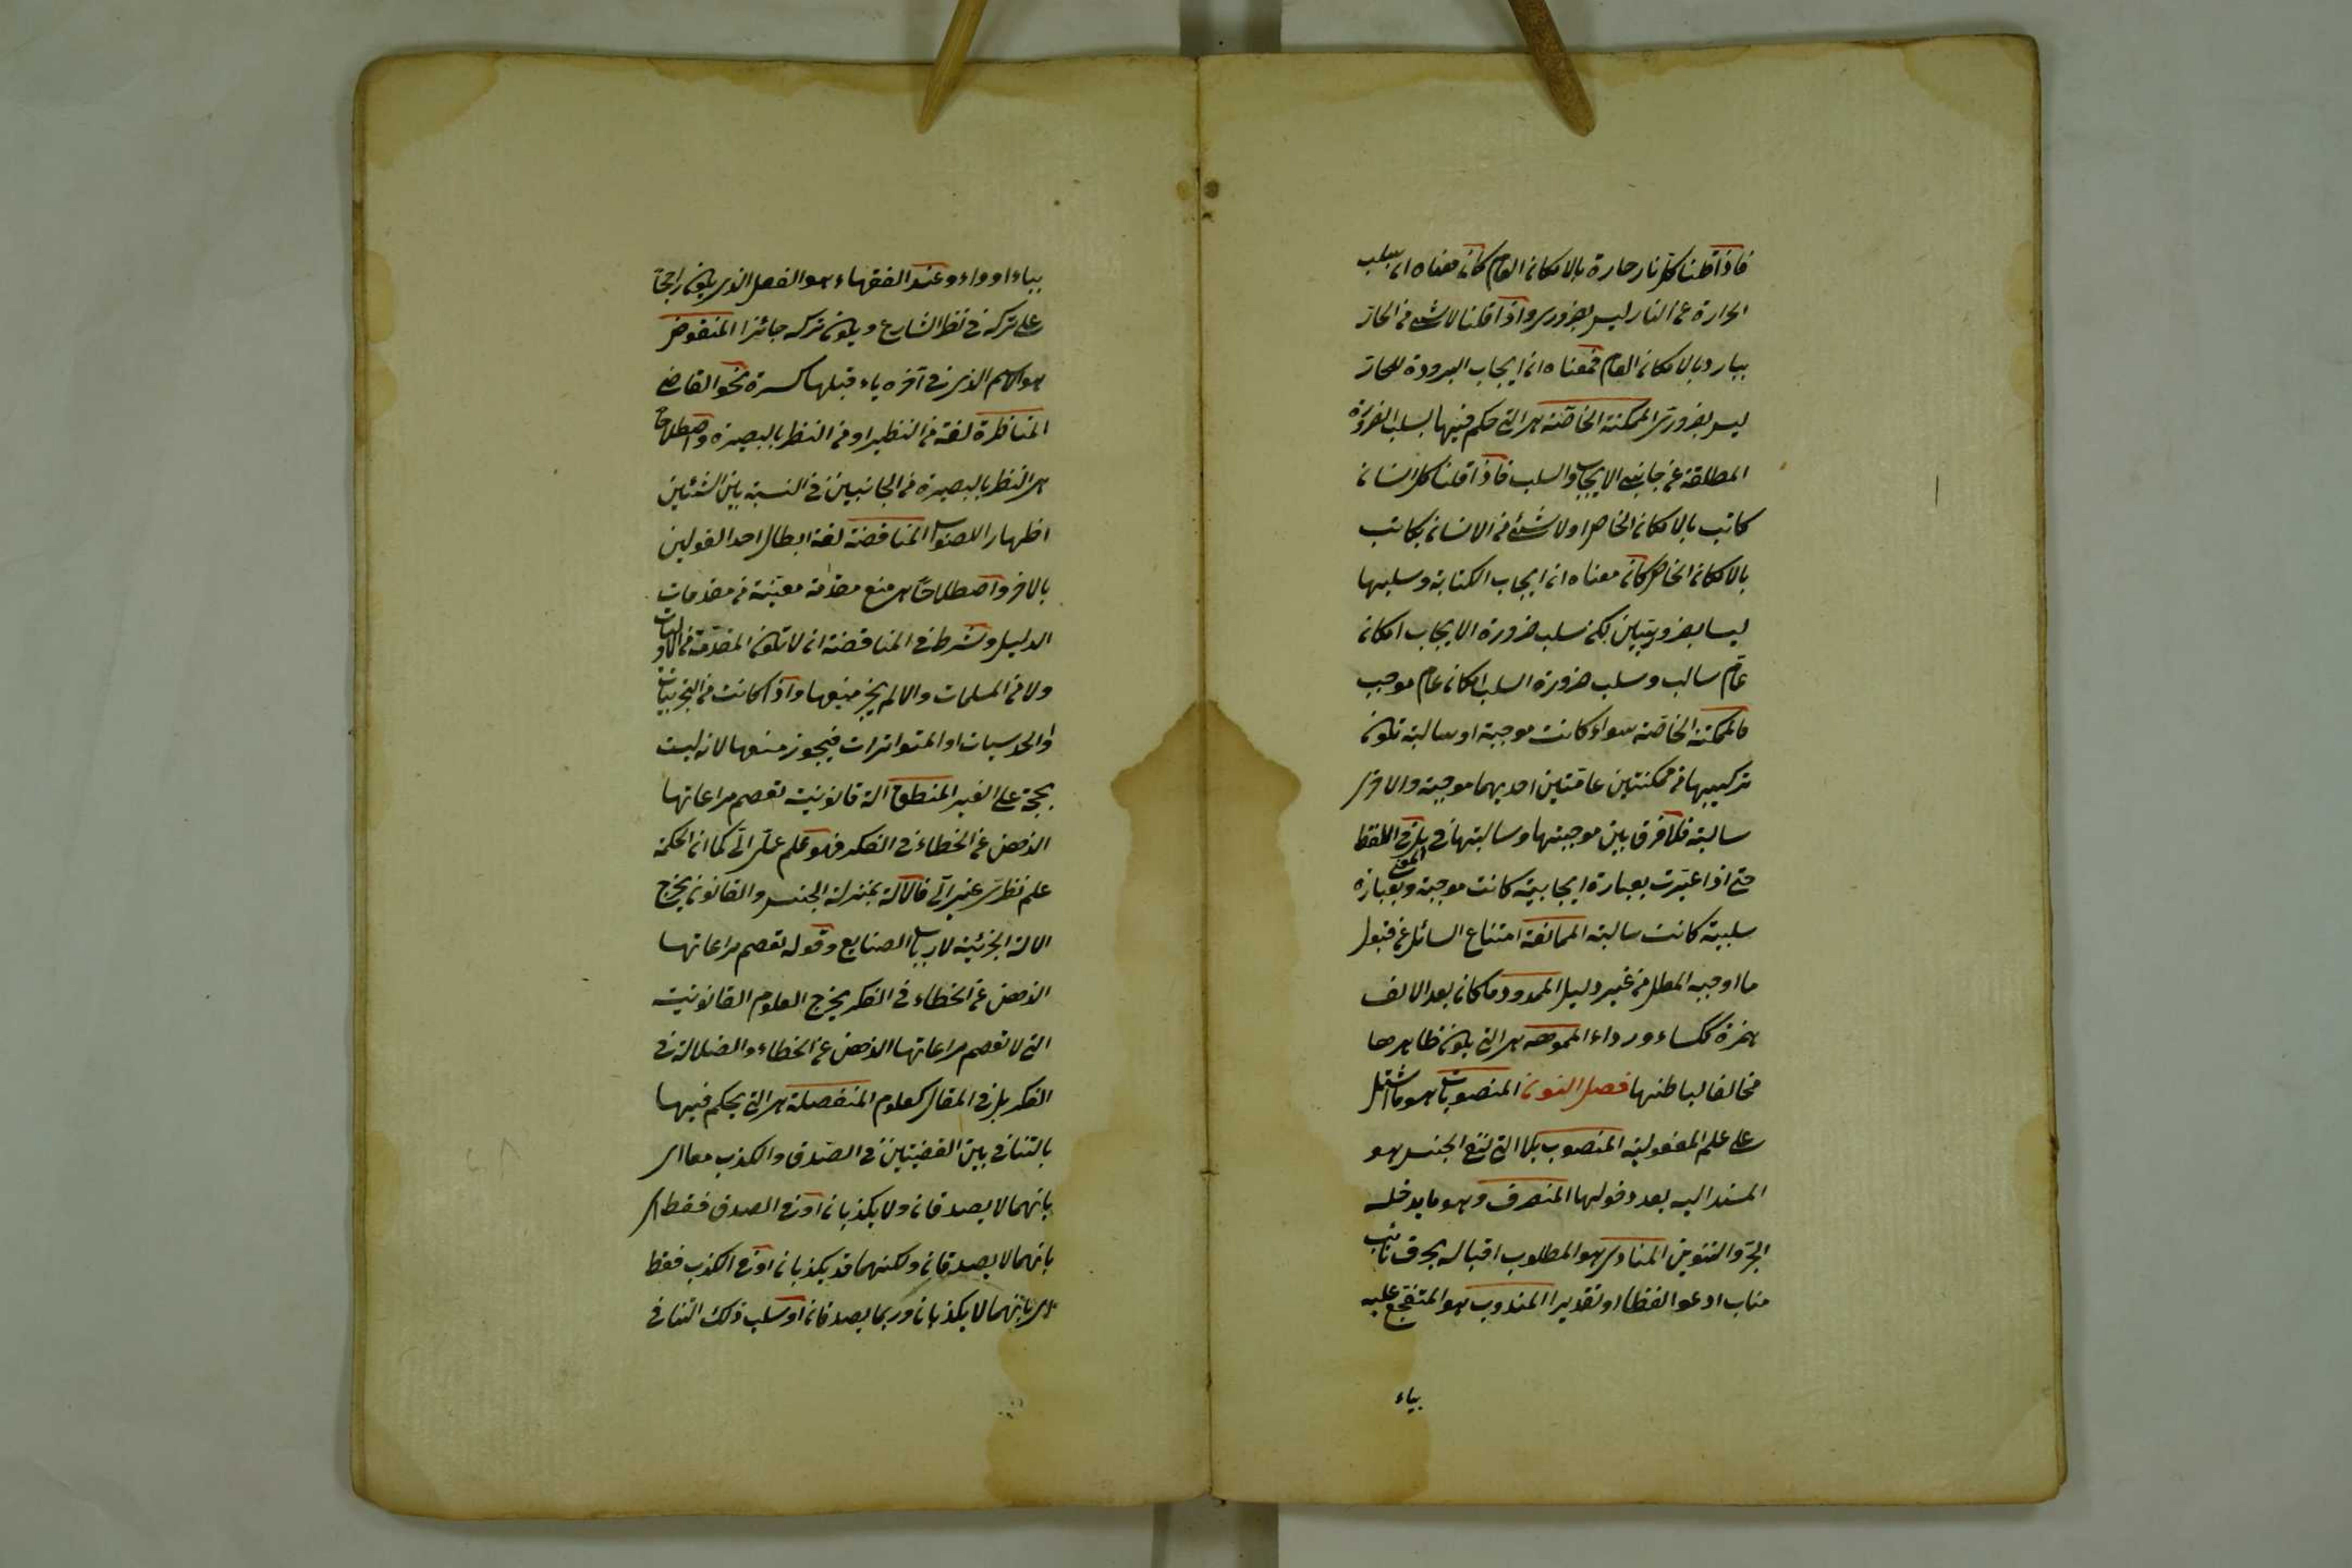 فاذا قلنا كل نار حارة بالامكان العام كان معناه ان سلب
الحرارة عن النار ليس بضروری واذا قلنا لا شئ من الحار
ببارد بالامكان العام فمعناه ان ايجاب البرودة للحار
ليس بضروری الممكنة الخاصة هی التی حكم فيها بسلب الضرورة
المطلقة عن جانبی الايجاب والسلب فاذا قلنا كل انسان
كاتب بالامكان الخاص او لا شئ من الانسان بكاتب
بالامكان الخاص كان معناه ان ايجاب الكتابة وسلبها
ليسا بضروريتين لكن سلب ضرورة الايجاب امكان
عام سالب وسلب ضرورة السلب امكان عام موجب
فالممكنة الخاصة سواء كانت موجبة او سالبة تكون
تركيبها من ممكنتين عامتين احديهما موجبة والاخری
سالبة فلا فرق بين موجبتها وسالبتها فی المعنی بل فی اللفظ
حتی اذا عبرت بعبارة ايجابية كانت موجبة وبعبارة
سلبية كانت سالبة الممانعة امتناع السائل عن قبول
ما اوجبه المعلل من غير دليل الممدود ما كان بعد الالف
همزة ككساء ورداء المموهة هی التی يكون ظاهرها
مخالفا لباطنها فصل النون المنصوبات هو ما اشتمل
علی علم المفعولية المنصوب بلا التی لنفی الجنس هو
المسند اليه بعد دخولها المنصرف وهو ما يدخله
الجر والتنوين المنادی هو المطلوب اقباله بحرف نائب
مناب ادعو لفظا او تقديرا المندوب هو المتفجع عليه
بياء
بياء او واو وعند الفقهاء هو الفعل الذی يكون راجحا
علی تركه فی نظر الشارع ويكون تركه جائزا المنقوص
هو الاسم الذی فی آخره ياء قبلها كسرة نحو القاضی
المناظرة لغة من النظير او من النظر بالبصيرة واصطلاحا
هی النظر بالبصيرة من الجانبين فی النسبة بين الشيئين
اظهارا للصواب المناقضة لغة ابطال احد القولين
بالاخر واصطلاحا هی منع مقدمة معينة من مقدمات
الدليل وشرط فی المناقضة ان لا تكون المقدمة من الاوليات
ولا من المسلمات والا لم يجز منعها واذا كانت من التجربيات
والحدسيات او المتواترات فيجوز منعها لانه ليست
بحجة علی الغير المنطق آلة قانونية تعصم مراعاتها
الذهن عن الخطاء فی الفكر فهو علم عملی آلی كما ان الحكمة
علم نظری غير آلی فالآلة بمنزلة الجنس والقانون يخرج
الآلة الجزئية لارباب الصنايع وقوله تعصم مراعاتها
الذهن عن الخطاء فی الفكر يخرج العلوم القانونية
التی لا تعصم مراعاتها الذهن عن الخطاء والضلالة فی
الفكر بل فی المقال كعلوم المنفصلة هی التی يحكم فيها
بالتنافی بين القضيتين فی الصدق والكذب معا ای
بانهما لا يصدقان ولا يكذبان او فی الصدق فقط ای
بانهما لا يصدقان ولكنهما قد يكذبان او فی الكذب فقط
ای بانهما لا يكذبان وربما يصدقان او سلب ذلك التنافی